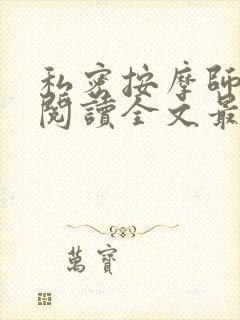 私密按摩師
閱讀全文最
萬寶